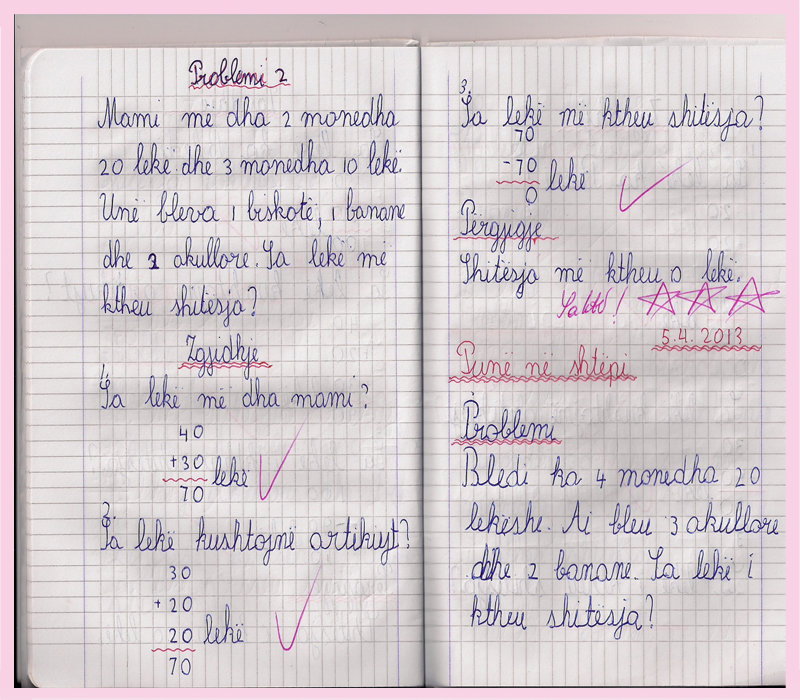 Problemi 2
Mami më dha 2 monedha
20 lekë dhe 3 monedha 10 lekë.
Unë bleva 1 biskotë, 1 banane
dhe 2 akullore. Sa lekë më
ktheu shitësja?
Zgjidhje
1.
Sa lekë më dha mami?
40
+30 lekë
70
2.
Sa lekë kushtojnë artikujt?
30
+20
20 lekë
70
3.
Sa lekë më ktheu shitësja?
70
-70 lekë
0
Përgjigje
Shitësja më ktheu 0 lekë.
Saktë!
5.4.2013
Punë në shtëpi
Problemi
Bledi ka 4 monedha 20
lekëshe. Ai bleu 3 akullore
dhe 2 banane. Sa lekë i
ktheu shitësja?